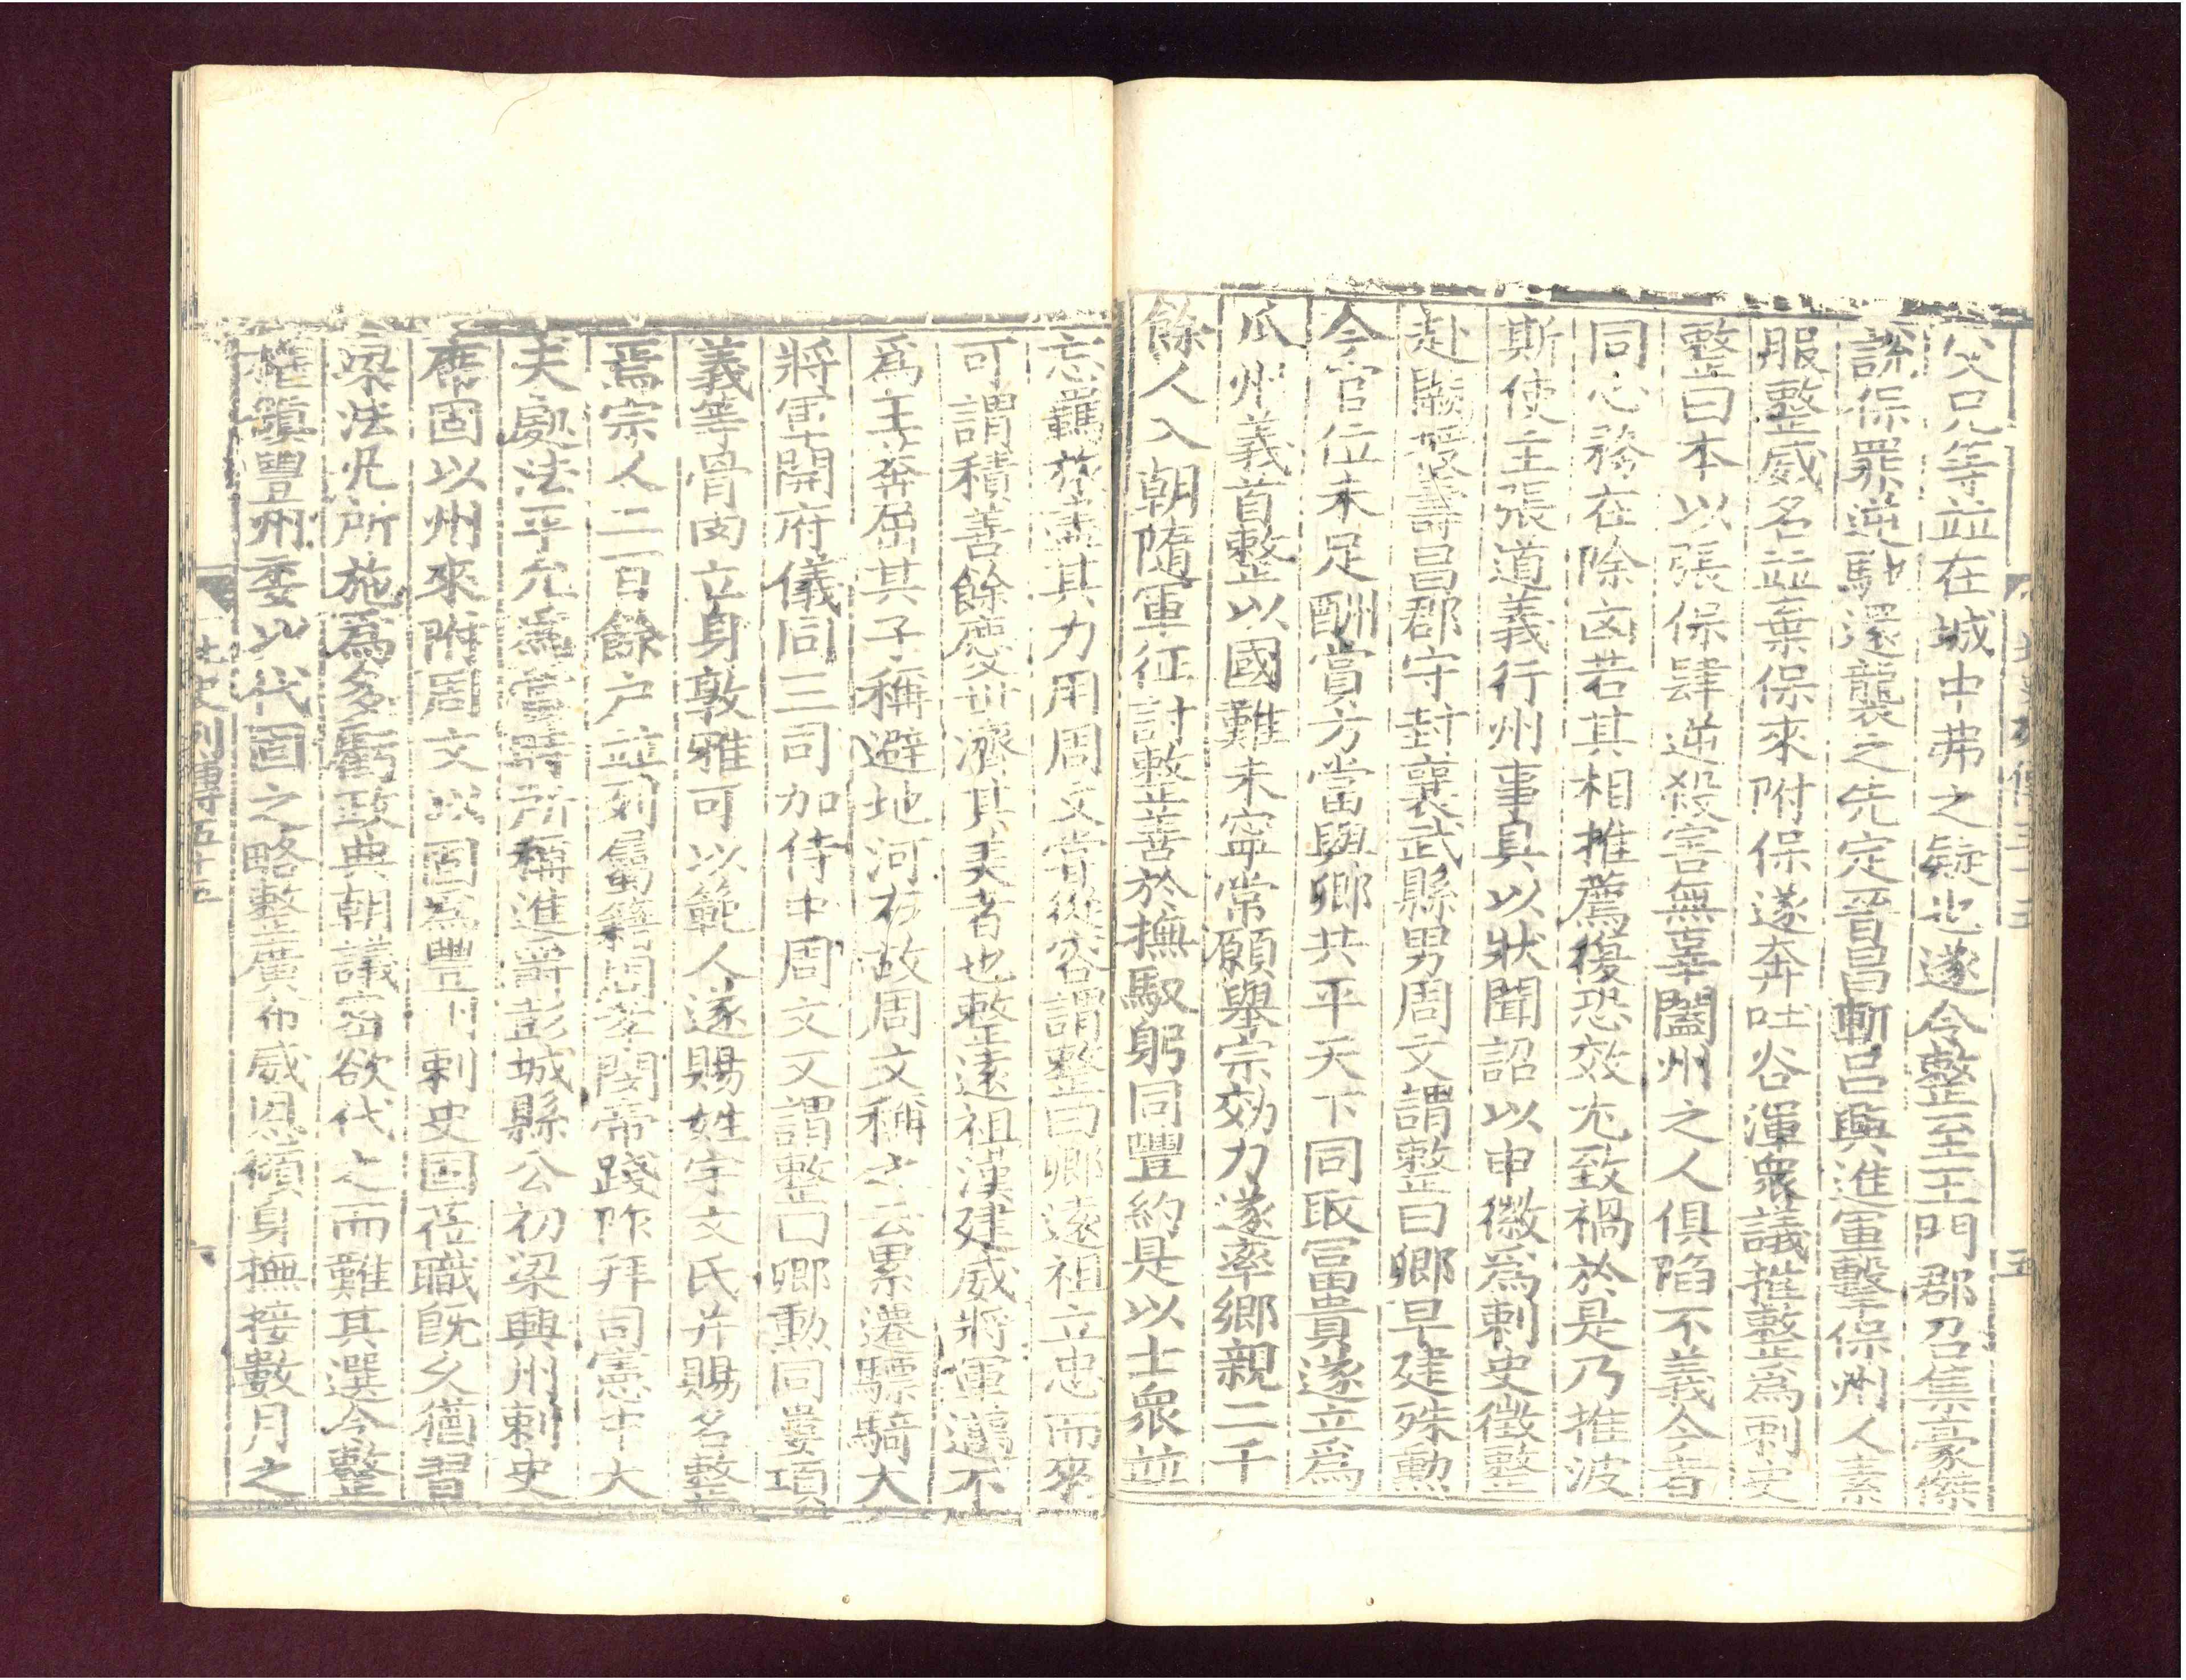 父兄等並在城中弗之疑也遂令整至玉門郡召集豪傑
說保罪逆馳還襲之先定晉昌斬呂興進軍擊保州人素
服整威名並棄保來附保遂奔吐谷渾衆議推整爲刺史
整曰本以張保肆逆殺害無辜闔州之人俱陷不義今者
同心務在除凶若其相推薦復恐效尤致禍於是乃推波
斯使主張道義行州事具以狀聞詔以申徽爲刺史徵整
赴闕授壽昌郡守封襄武縣男周文謂整曰卿早建殊勲
今官位未足酬賞方當與卿共平天下同取冨貴遂立爲
瓜州義首整以國難未寧常願舉宗効力遂率鄉親二千
餘人入朝隨軍征討整善於撫馭躬同豐約是以士衆並
忘羈旅盡其力用周文甞從容謂整曰卿遠祖立忠而來
可謂積善餘慶世濟其美者也整遠祖漢建威將軍邁不
爲王莽屈其子稱避地河右故周文稱之云累遷驃騎大
將軍開府儀同三司加侍中周文又謂整曰卿勲同婁項
義等骨肉立身敦雅可以範人遂賜姓宇文氏并賜名整
焉宗人二百餘户並列屬籍周孝閔帝踐阼拜司憲中大
夫處法平允爲當時所稱進爵彭城縣公初梁興州刺史
席固以州來附周文以固爲豐州刺史固莅職旣乆猶習
梁法凡所施爲多虧政典朝議密欲代之而難其選令整
權鎮豐州委以代固之略整廣布威恩傾身撫接數月之
北史列傳五十五
五
北史列傳五十五
六